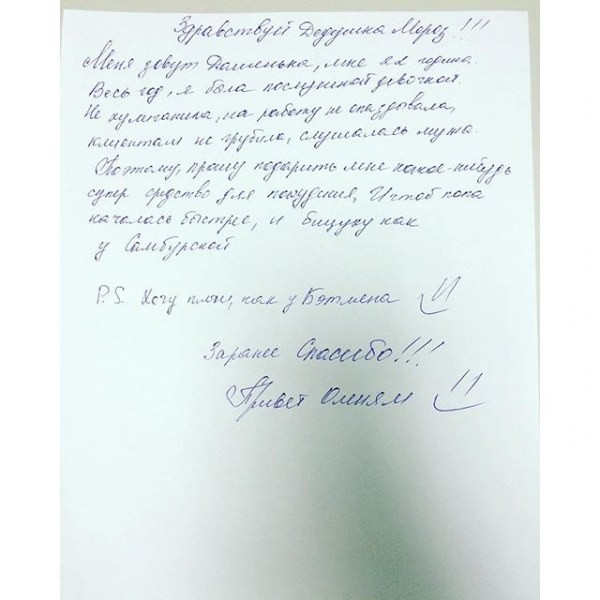 Здравствуй Дедушка Мороз!!!
Меня зовут мне годика.
Весь год, я была послушной девочкой.
Не хулиганила, на работу не опаздывала,
клиентам не грубила, слушалась мужа.
Поэтому, прошу подарить мне какое-нибудь
супер средство для похудения, И чтоб попа
качалась быстрее, и бицуху как
у Самбурской
P.S. Хочу плащ, как у Бэтмена
Заранее Спасибо!!!
Привет Оленям